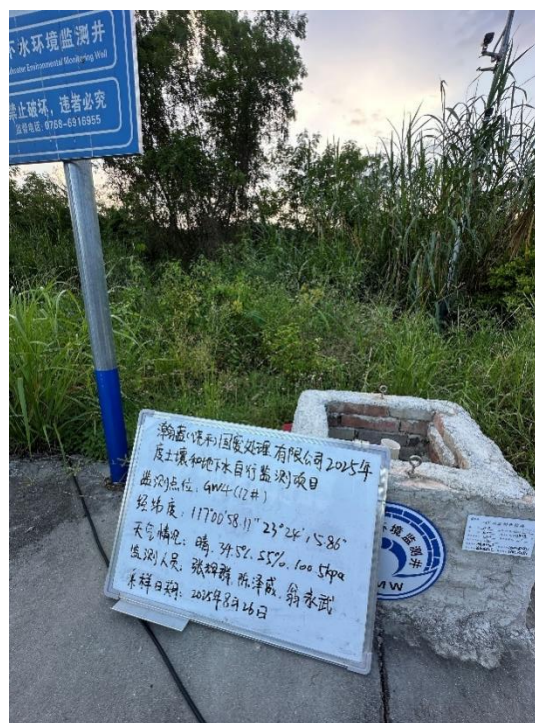 下水环境监测井
dwater Environmental Monitoring Well
禁止破坏，违者必究
监督电话：0768-6916955
瀚蓝(饶平)固废处理有限公司2025年
度土壤和地下水自行监测项目
监测点位：GW4(12#)
经纬度：117°00'58.17" 23°24'15.86"
天气情况：晴，34.5℃.55%.100.5kpa
监测人员：张耀群 陈泽威、翁永武
采样日期：2025年8月26日
环境监测井
MW